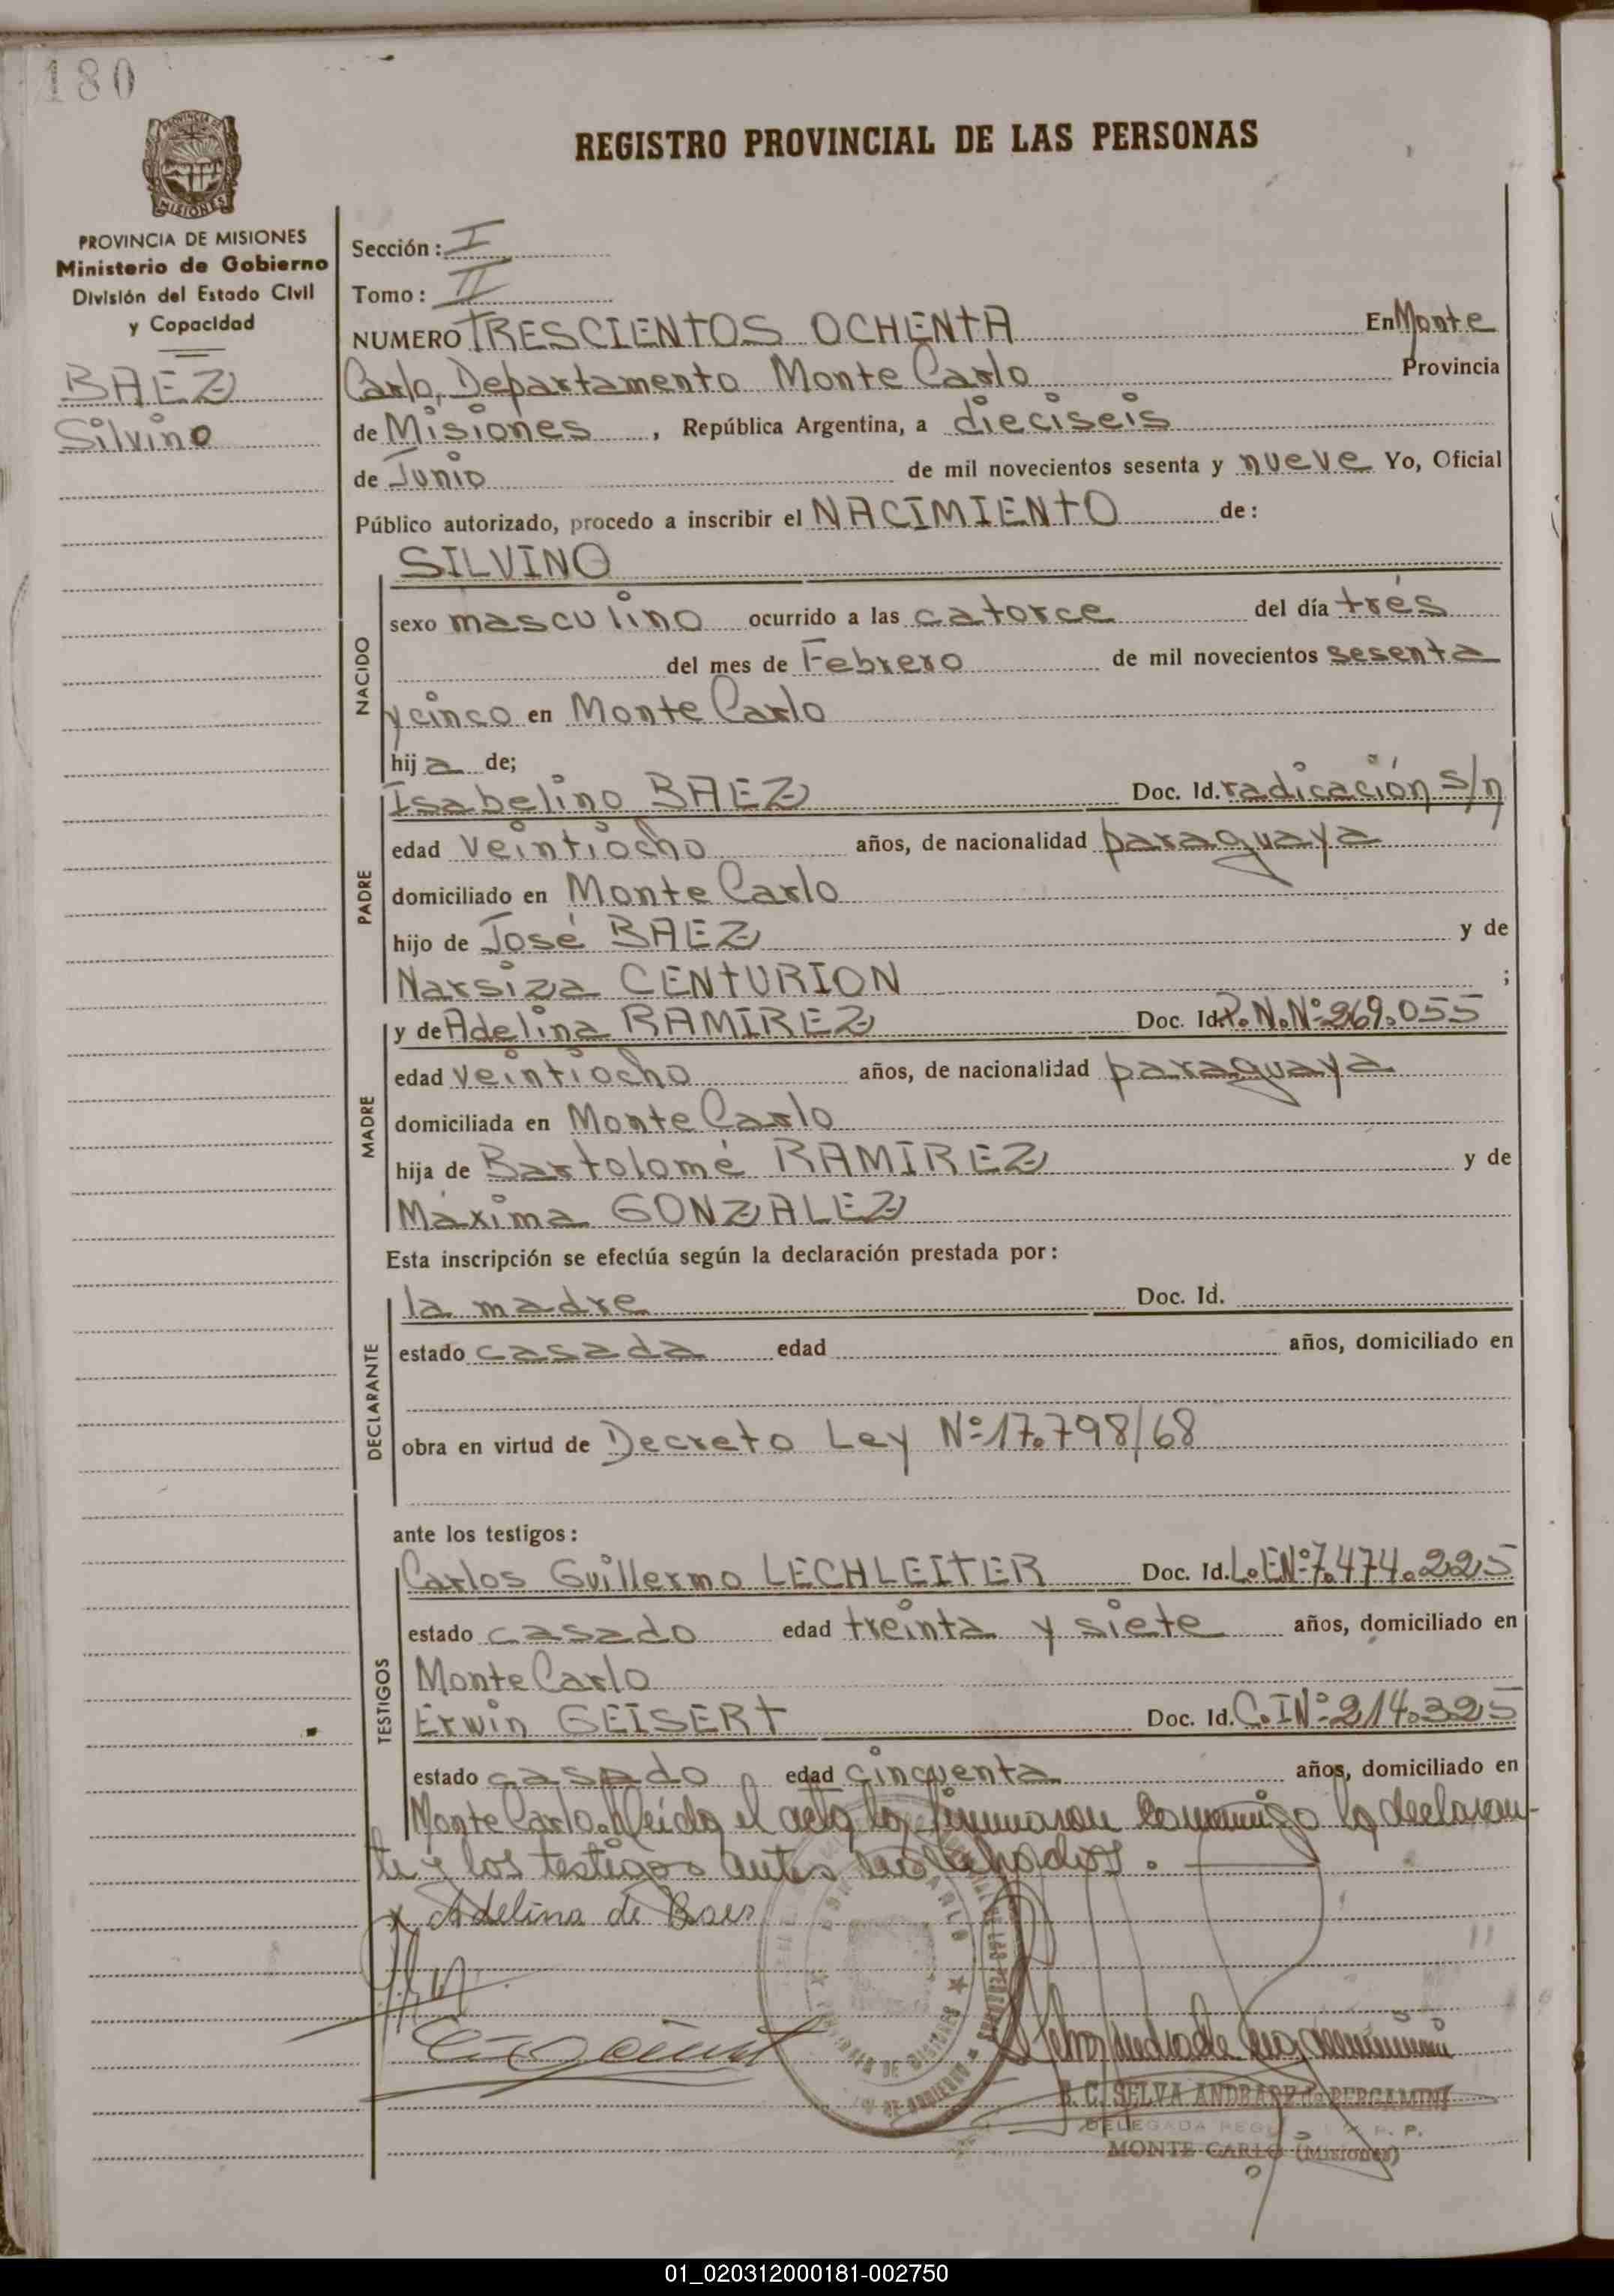 180
REGISTRO PROVINCIAL DE LAS PERSONAS
PROVINCIA DE
MISIONES
PROVINCIA DE MISIONES
Ministerio de Gobierno
División del Estado Civil
y Capacidad
BAEZ
Silvino
Sección: I
Tomo: II
NUMERO TRESCIENTOS OCHENTA En Monte
Carlo, Departamento Monte Carlo Provincia
de Misiones, República Argentina, a dieciseis
de Junio de mil novecientos sesenta y nueve Yo, Oficial
Público autorizado, procedo a inscribir el NACIMIENTO de:
SILVINO
NACIDO
sexo masculino ocurrido a las catorce del día trés
del mes de Febrero de mil novecientos sesenta
y cinco en Monte Carlo
hija de;
PADRE
Isabelino BAEZ Doc. Id. radicación s/n
edad veintiocho años, de nacionalidad paraguaya
domiciliado en Monte Carlo
hijo de José BAEZ y de
Narsiza CENTURION ;
MADRE
y de Adelina RAMIREZ Doc. Id. P.N.Nº 269.055
edad veintiocho años, de nacionalidad paraguaya
domiciliada en Monte Carlo
hija de Bartolomé RAMIREZ y de
Máxima GONZALEZ
Esta inscripción se efectúa según la declaración prestada por:
DECLARANTE
la madre Doc. Id.
estado casada edad años, domiciliado en
obra en virtud de Decreto Ley Nº 17.798/68
ante los testigos:
TESTIGOS
Carlos Guillermo LECHLEITER Doc. Id. L.E.Nº 7.474.225
estado casado edad treinta y siete años, domiciliado en
Monte Carlo
Erwin GEISERT Doc. Id. C.I Nº 214.325
estado casado edad cincuenta años, domiciliado en
Monte Carlo. leida el acta la firmaron conmigo la declaran-
te y los testigos antes
x Adelina de Baes
MONTE CARLO
PROVINCIA DE MISIONES
DE GOBIERNO
B. C. SELVA ANDRADE de BERGAMINI
DELEGADA P.
MONTE CARLO (Misiones)
01_020312000181-002750